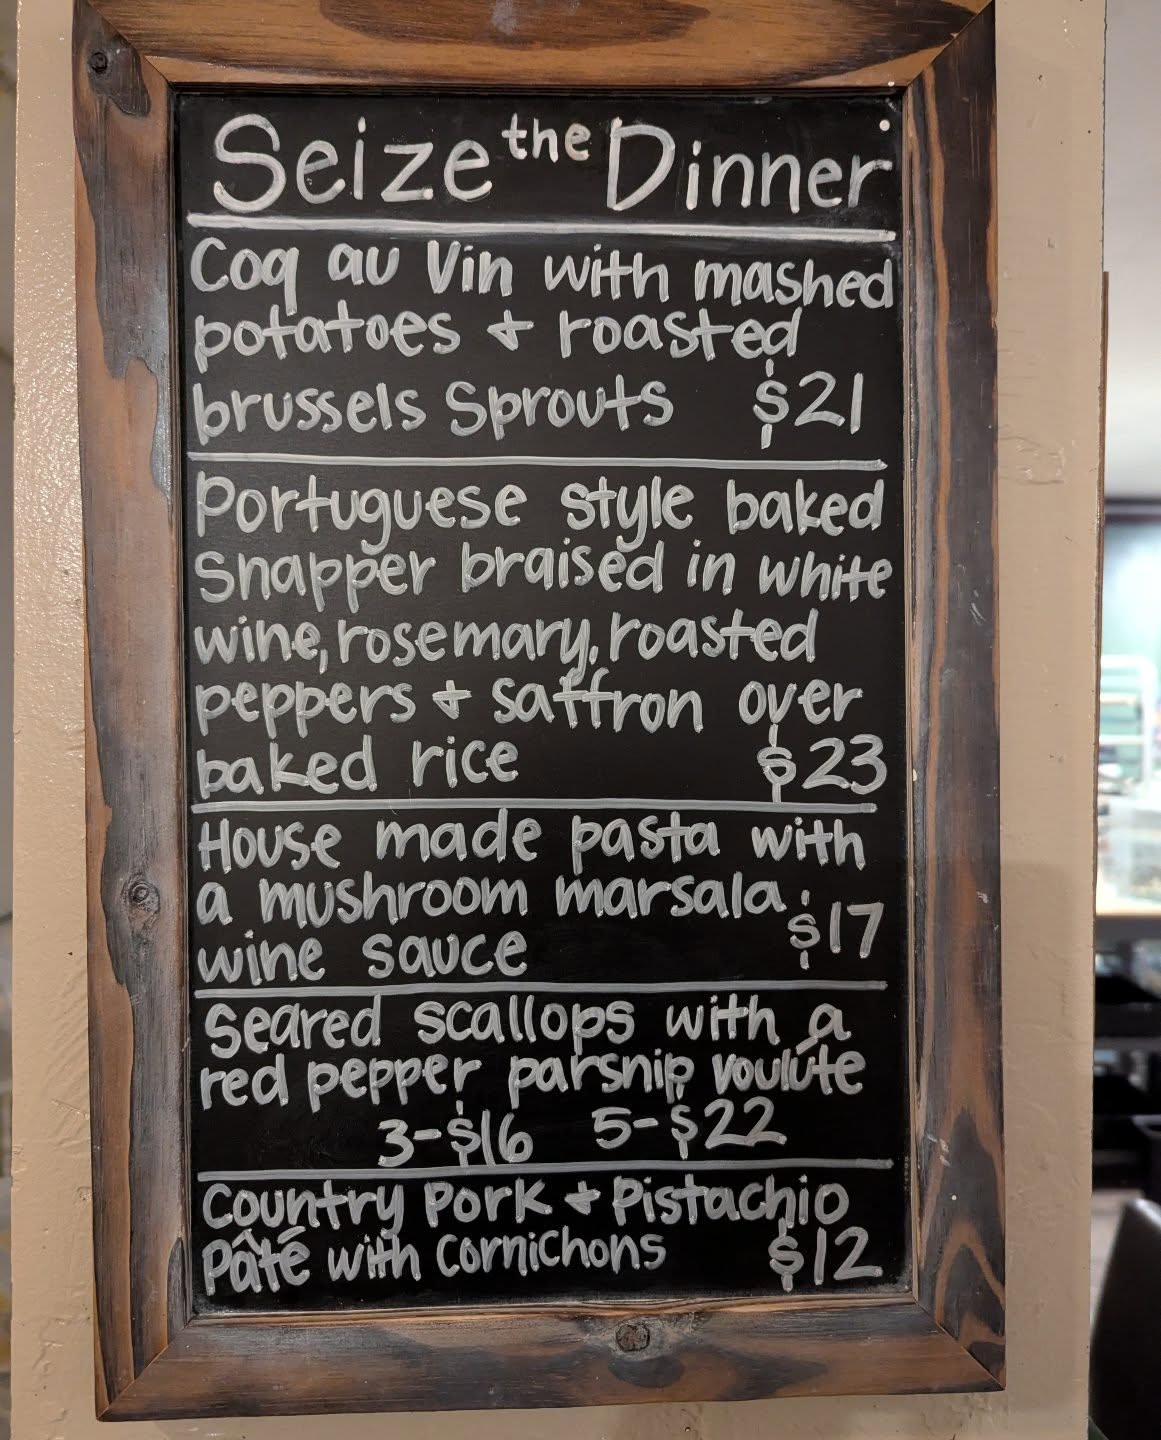 Seize the Dinner
Coq au Vin with mashed
potatoes + roasted
brussels sprouts $21
Portuguese style baked
snapper braised in white
wine, rosemary, roasted
peppers + saffron over
baked rice $23
House made pasta with
a mushroom marsala
wine sauce $17
Seared scallops with a
red pepper parsnip voulúte
3-$16 5-$22
Country Pork + Pistachio
Pâté with Cornichons $12